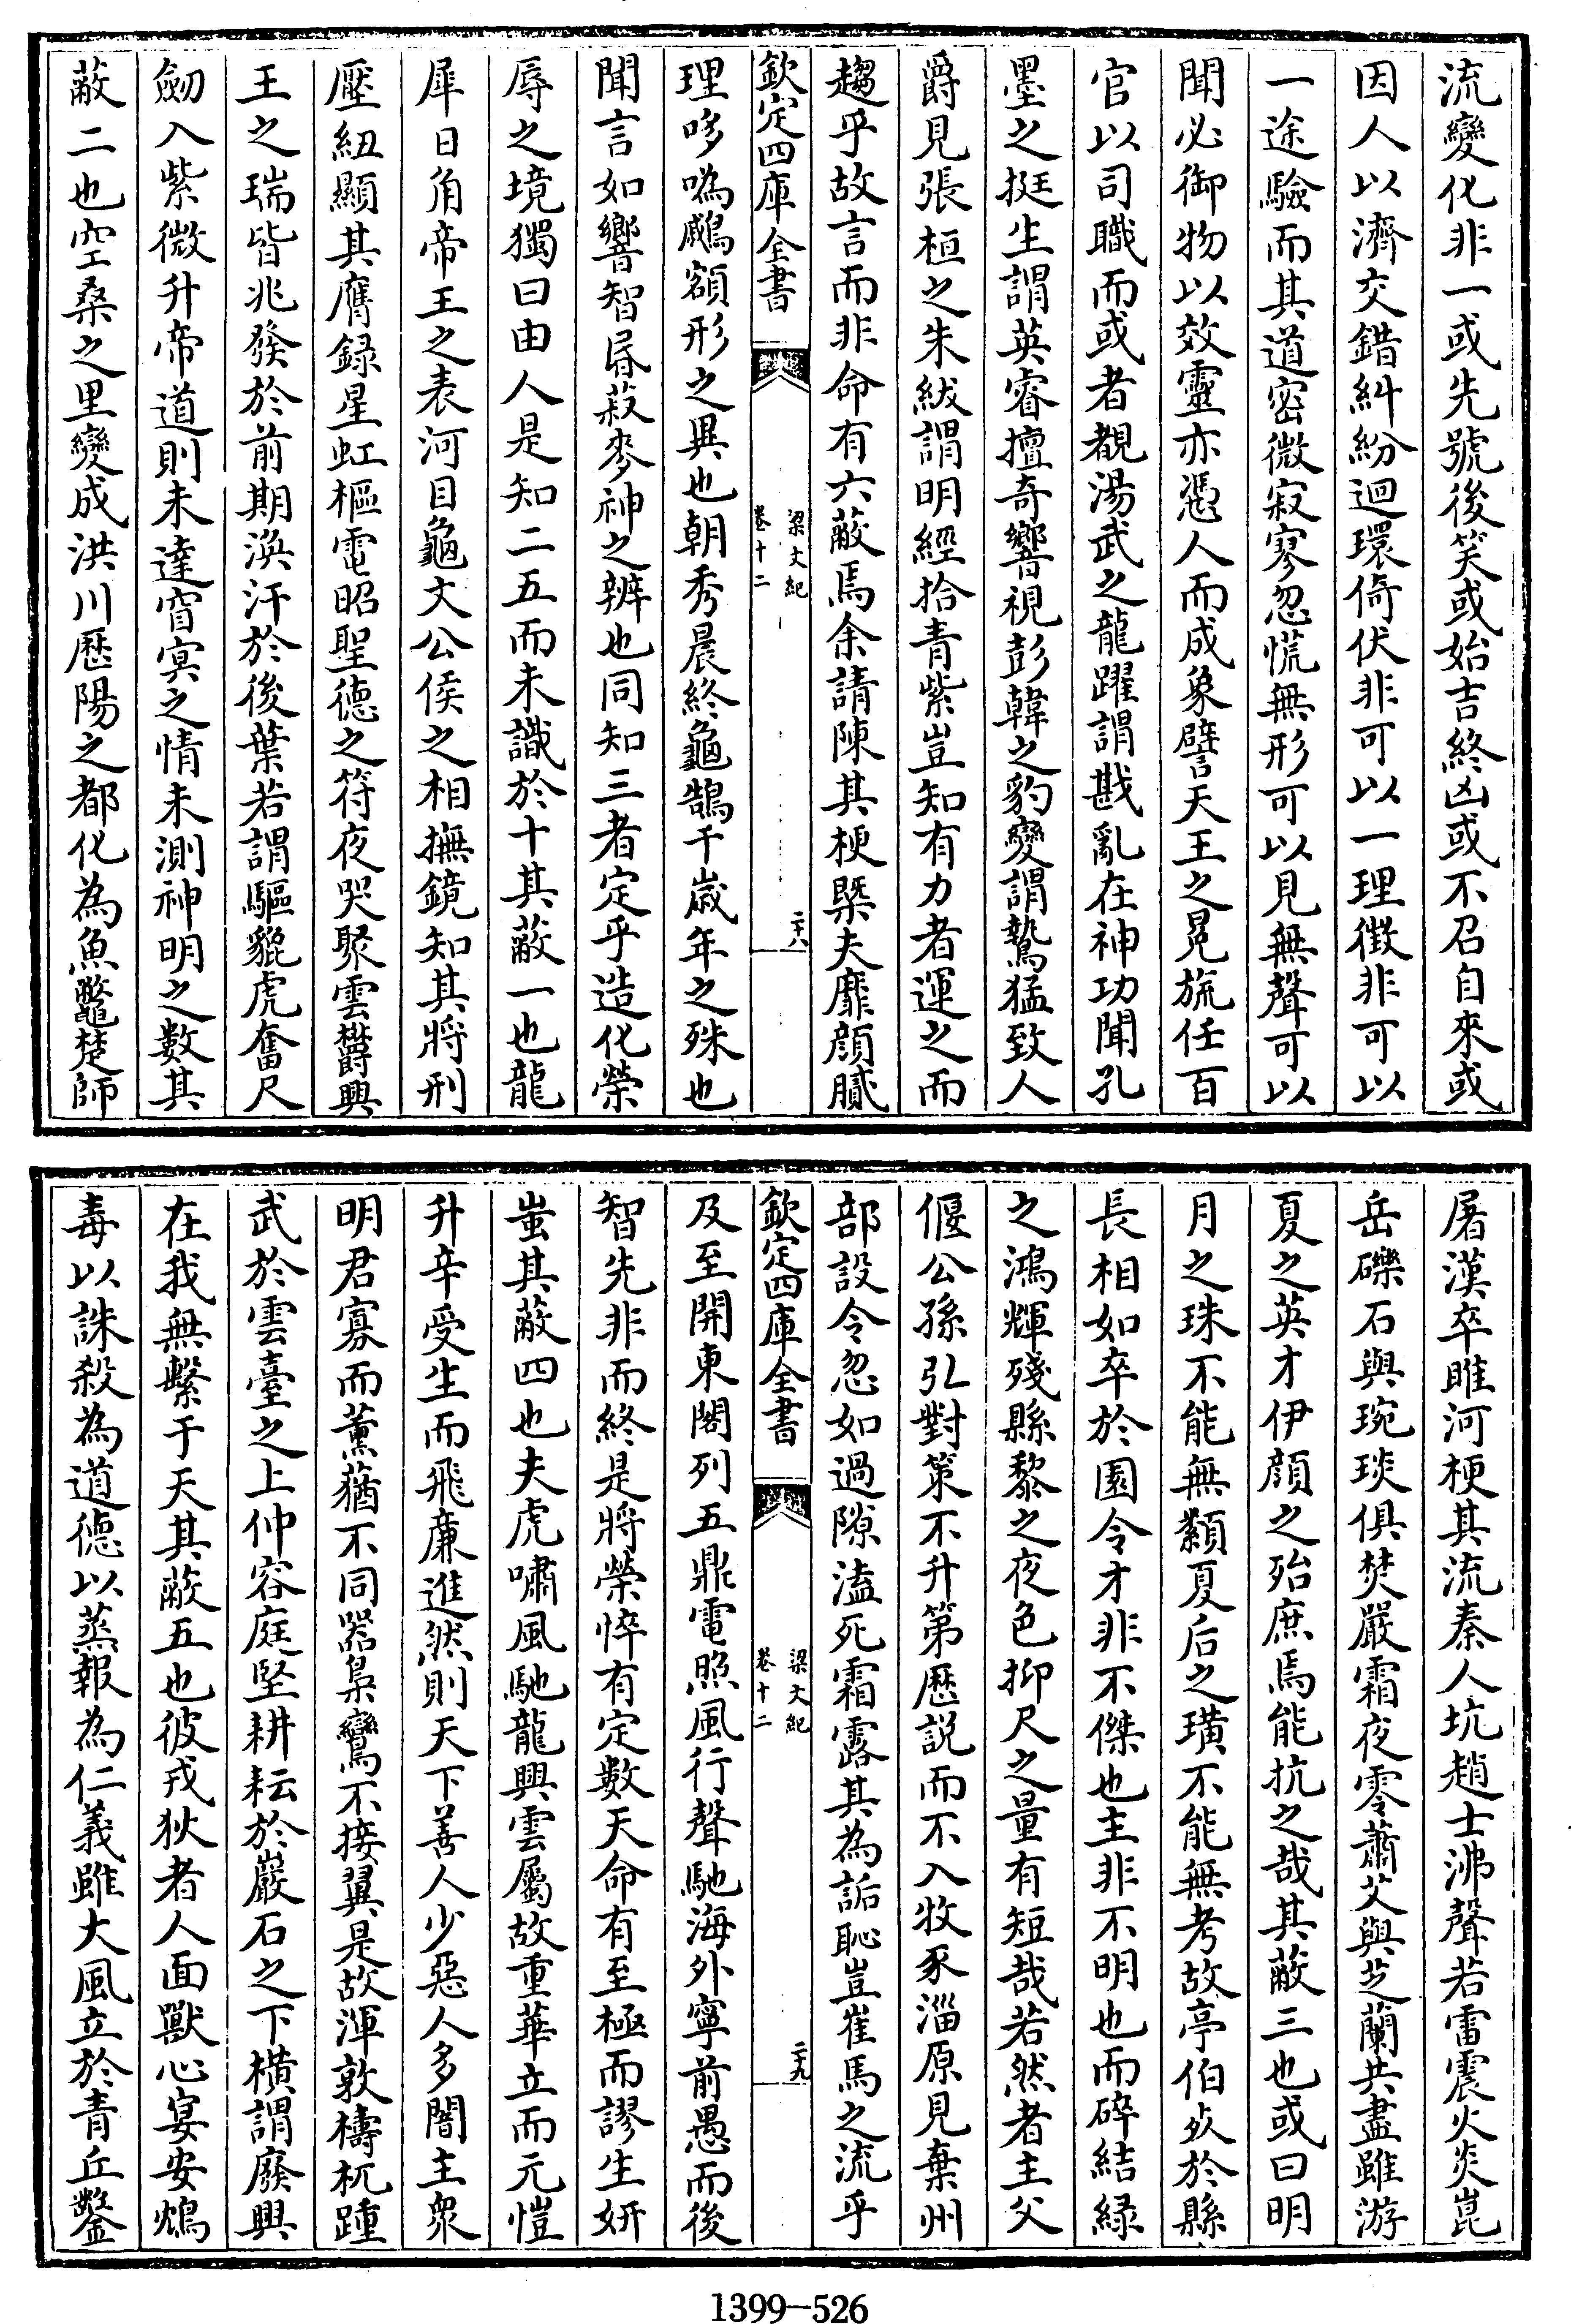 流變化非一或先號後笑或始吉終凶或不召自來或
因人以濟交錯糾紛迴環倚伏非可以一理徵非可以
一途驗而其道密微寂寥忽慌無形可以見無聲可以
聞必御物以效靈亦憑人而成象譬天王之冕旒任百
官以司職而或者覩湯武之龍躍謂戡亂在神功聞孔
墨之挺生謂英睿擅奇響視彭韓之豹變謂鷙猛致人
爵見張桓之朱紱謂明經拾青紫豈知有力者運之而
趨乎故言而非命有六蔽焉余請陳其梗槩夫靡顔膩
欽定四庫全書
梁文紀
卷十二
二十八
理哆噅顣頞形之異也朝秀晨終龜鵠千歲年之殊也
聞言如響智昬菽麥神之辨也同知三者定乎造化榮
辱之境獨曰由人是知二五而未識於十其蔽一也龍
犀日角帝王之表河目龜文公侯之相撫鏡知其將刑
壓紐顯其膺録星虹樞電昭聖德之符夜哭聚雲欝興
王之瑞皆兆發於前期渙汗於後葉若謂驅貔虎奮尺
劒入紫微升帝道則未達窅冥之情未測神明之數其
蔽二也空桑之里變成洪川歷陽之都化為魚鼈楚師
屠漢卒睢河梗其流秦人坑趙士沸聲若雷震火炎崑
岳礫石與琬琰俱焚嚴霜夜零蕭艾與芝蘭共盡雖游
夏之英才伊顔之殆庶焉能抗之哉其蔽三也或曰明
月之珠不能無纇夏后之璜不能無考故亭伯死於縣
長相如卒於園令才非不傑也主非不明也而碎結緑
之鴻輝殘縣黎之夜色抑尺之量有短哉若然者主父
偃公孫弘對策不升第歷説而不入牧豕淄原見棄州
部設令忽如過隙溘死霜露其為詬恥豈崔馬之流乎
欽定四庫全書
梁文紀
卷十二
二十九
及至開東閤列五鼎電照風行聲馳海外寧前愚而後
智先非而終是將榮悴有定數天命有至極而謬生妍
蚩其蔽四也夫虎嘯風馳龍興雲屬故重華立而元愷
升辛受生而飛廉進然則天下善人少惡人多闇主衆
明君寡而薰蕕不同器梟鸞不接翼是故渾敦檮杌踵
武於雲臺之上仲容庭堅耕耘於巖石之下横謂廢興
在我無繫于天其蔽五也彼戎狄者人面獸心宴安鴆
毒以誅殺為道德以蒸報為仁義雖大風立於青丘鑿
1399—526